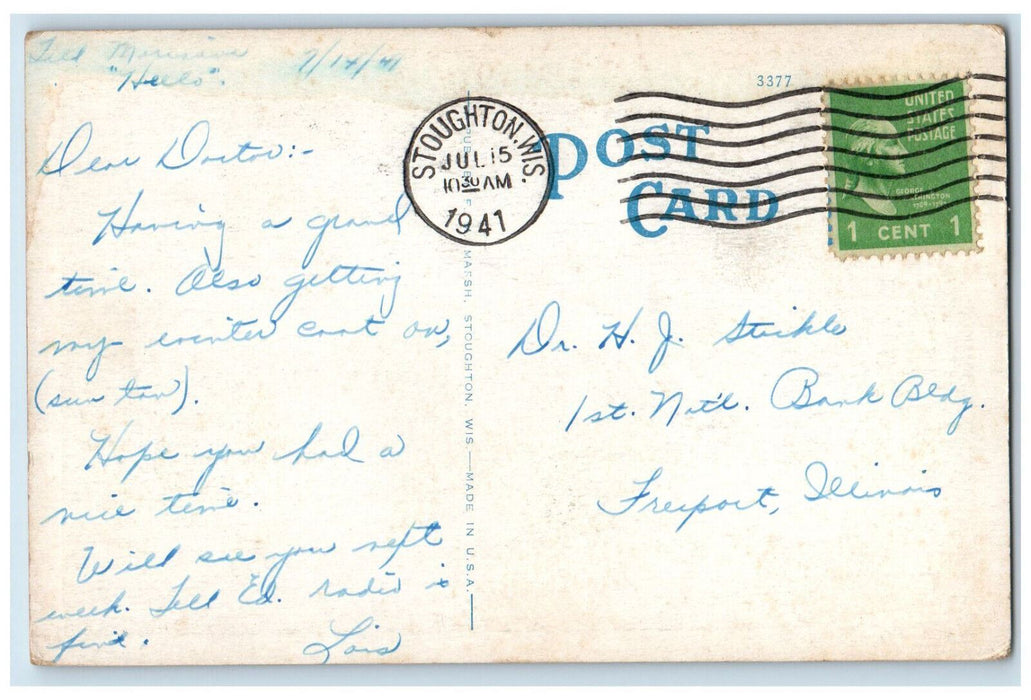 Tell
"Hello". 7/14/41
Dear Doctor:-
Having a grand
time. Also getting
my winter coat on,
(sun tan).
Hope you had a
nice time.
Will see you next
week. Tell Ed. radio is
fine.
Lois
MARSH, STOUGHTON, WIS.—MADE IN U.S.A.
STOUGHTON, WIS.
JUL 15
10 30 AM
1941
3377
POST
CARD
UNITED
STATES
POSTAGE
GEORGE
1 CENT 1
Dr. H. J. Stickle
1st. Nat'l. Bank Bldg.
Freeport, Illinois